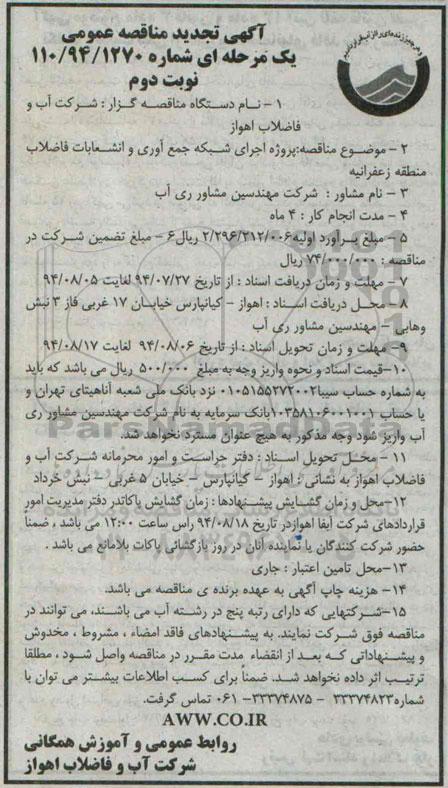 آگهی تجدید مناقصه عمومی
یک مرحله ای شماره ۱۱۰/۹۴/۱۲۷۰
نوبت دوم
۱- نام دستگاه مناقصه گزار : شرکت آب و
فاضلاب اهواز
۲- موضوع مناقصه:پروژه اجرای شبکه جمع آوری و انشعابات فاضلاب
منطقه زعفرانیه
۳ - نام مشاور : شرکت مهندسین مشاور ری آب
۴ - مدت انجام کار : ۴ ماه
۵ - مبلغ برآورد اولیه۲/۲۹۶/۲۱۲/۰۰۶ ریال۶ - مبلغ تضمین شرکت در
مناقصه : ۷۴/۰۰۰/۰۰۰ ریال
۷ - مهلت و زمان دریافت اسناد : از تاریخ ۹۴/۰۷/۲۷ لغایت ۹۴/۰۸/۰۵
۸ - محل دریافت اسناد : اهواز - کیانپارس خیابان ۱۷ غربی فاز ۳ نبش
وهابی - مهندسین مشاور ری آب
۹- مهلت و زمان تحویل اسناد : از تاریخ ۹۴/۰۸/۰۶ لغایت ۹۴/۰۸/۱۷
۱۰-قیمت اسناد و نحوه واریز وجه به مبلغ ۵۰۰/۰۰۰ ریال می باشد که باید
به شماره حساب سیبا۰۱۰۵۱۵۵۲۷۲۰۰۲ نزد بانک ملی شعبه آناهیتای تهران و
یا حساب ۱۰۳۵۸۱۰۶۰۰۱۰۰۱بانک سرمایه به نام شرکت مهندسین مشاور ری
آب واریز شود وجه مذکور به هیچ عنوان مسترد نخواهد شد.
۱۱ - محل تحویل اسناد : دفتر حراست و امور محرمانه شرکت آب و
فاضلاب اهواز به نشانی : اهواز - کیانپارس - خیابان ۵ غربی - نبش خرداد
۱۲-محل و زمان گشایش پیشنهادها : زمان گشایش پاکاتدر دفتر مدیریت امور
قراردادهای شرکت آبفا اهوازدر تاریخ ۹۴/۰۸/۱۸ راس ساعت ۱۲:۰۰ می باشد ، ضمنا
حضور شرکت کنندگان یا نماینده آنان در روز بازگشائی پاکات بلامانع می باشد .
۱۳-محل تامین اعتبار : جاری
۱۴- هزینه چاپ آگهی به عهده برنده ی مناقصه می باشد.
۱۵-شرکتهایی که دارای رتبه پنج در رشته آب می باشند، می توانند در
مناقصه فوق شرکت نمایند. به پیشنهادهای فاقد امضاء ، مشروط ، مخدوش
و پیشنهاداتی که بعد از انقضاء مدت مقرر در مناقصه واصل شود ، مطلقا
ترتیب اثر داده نخواهد شد. ضمناً برای کسب اطلاعات بیشتر می توان با
شماره۳۳۳۷۴۸۲۳ - ۳۳۳۷۴۸۷۵- ۰۶۱ تماس گرفت.
AWW.CO.IR
روابط عمومی و آموزش همگانی
شرکت آب و فاضلاب اهواز
ParsNamadData